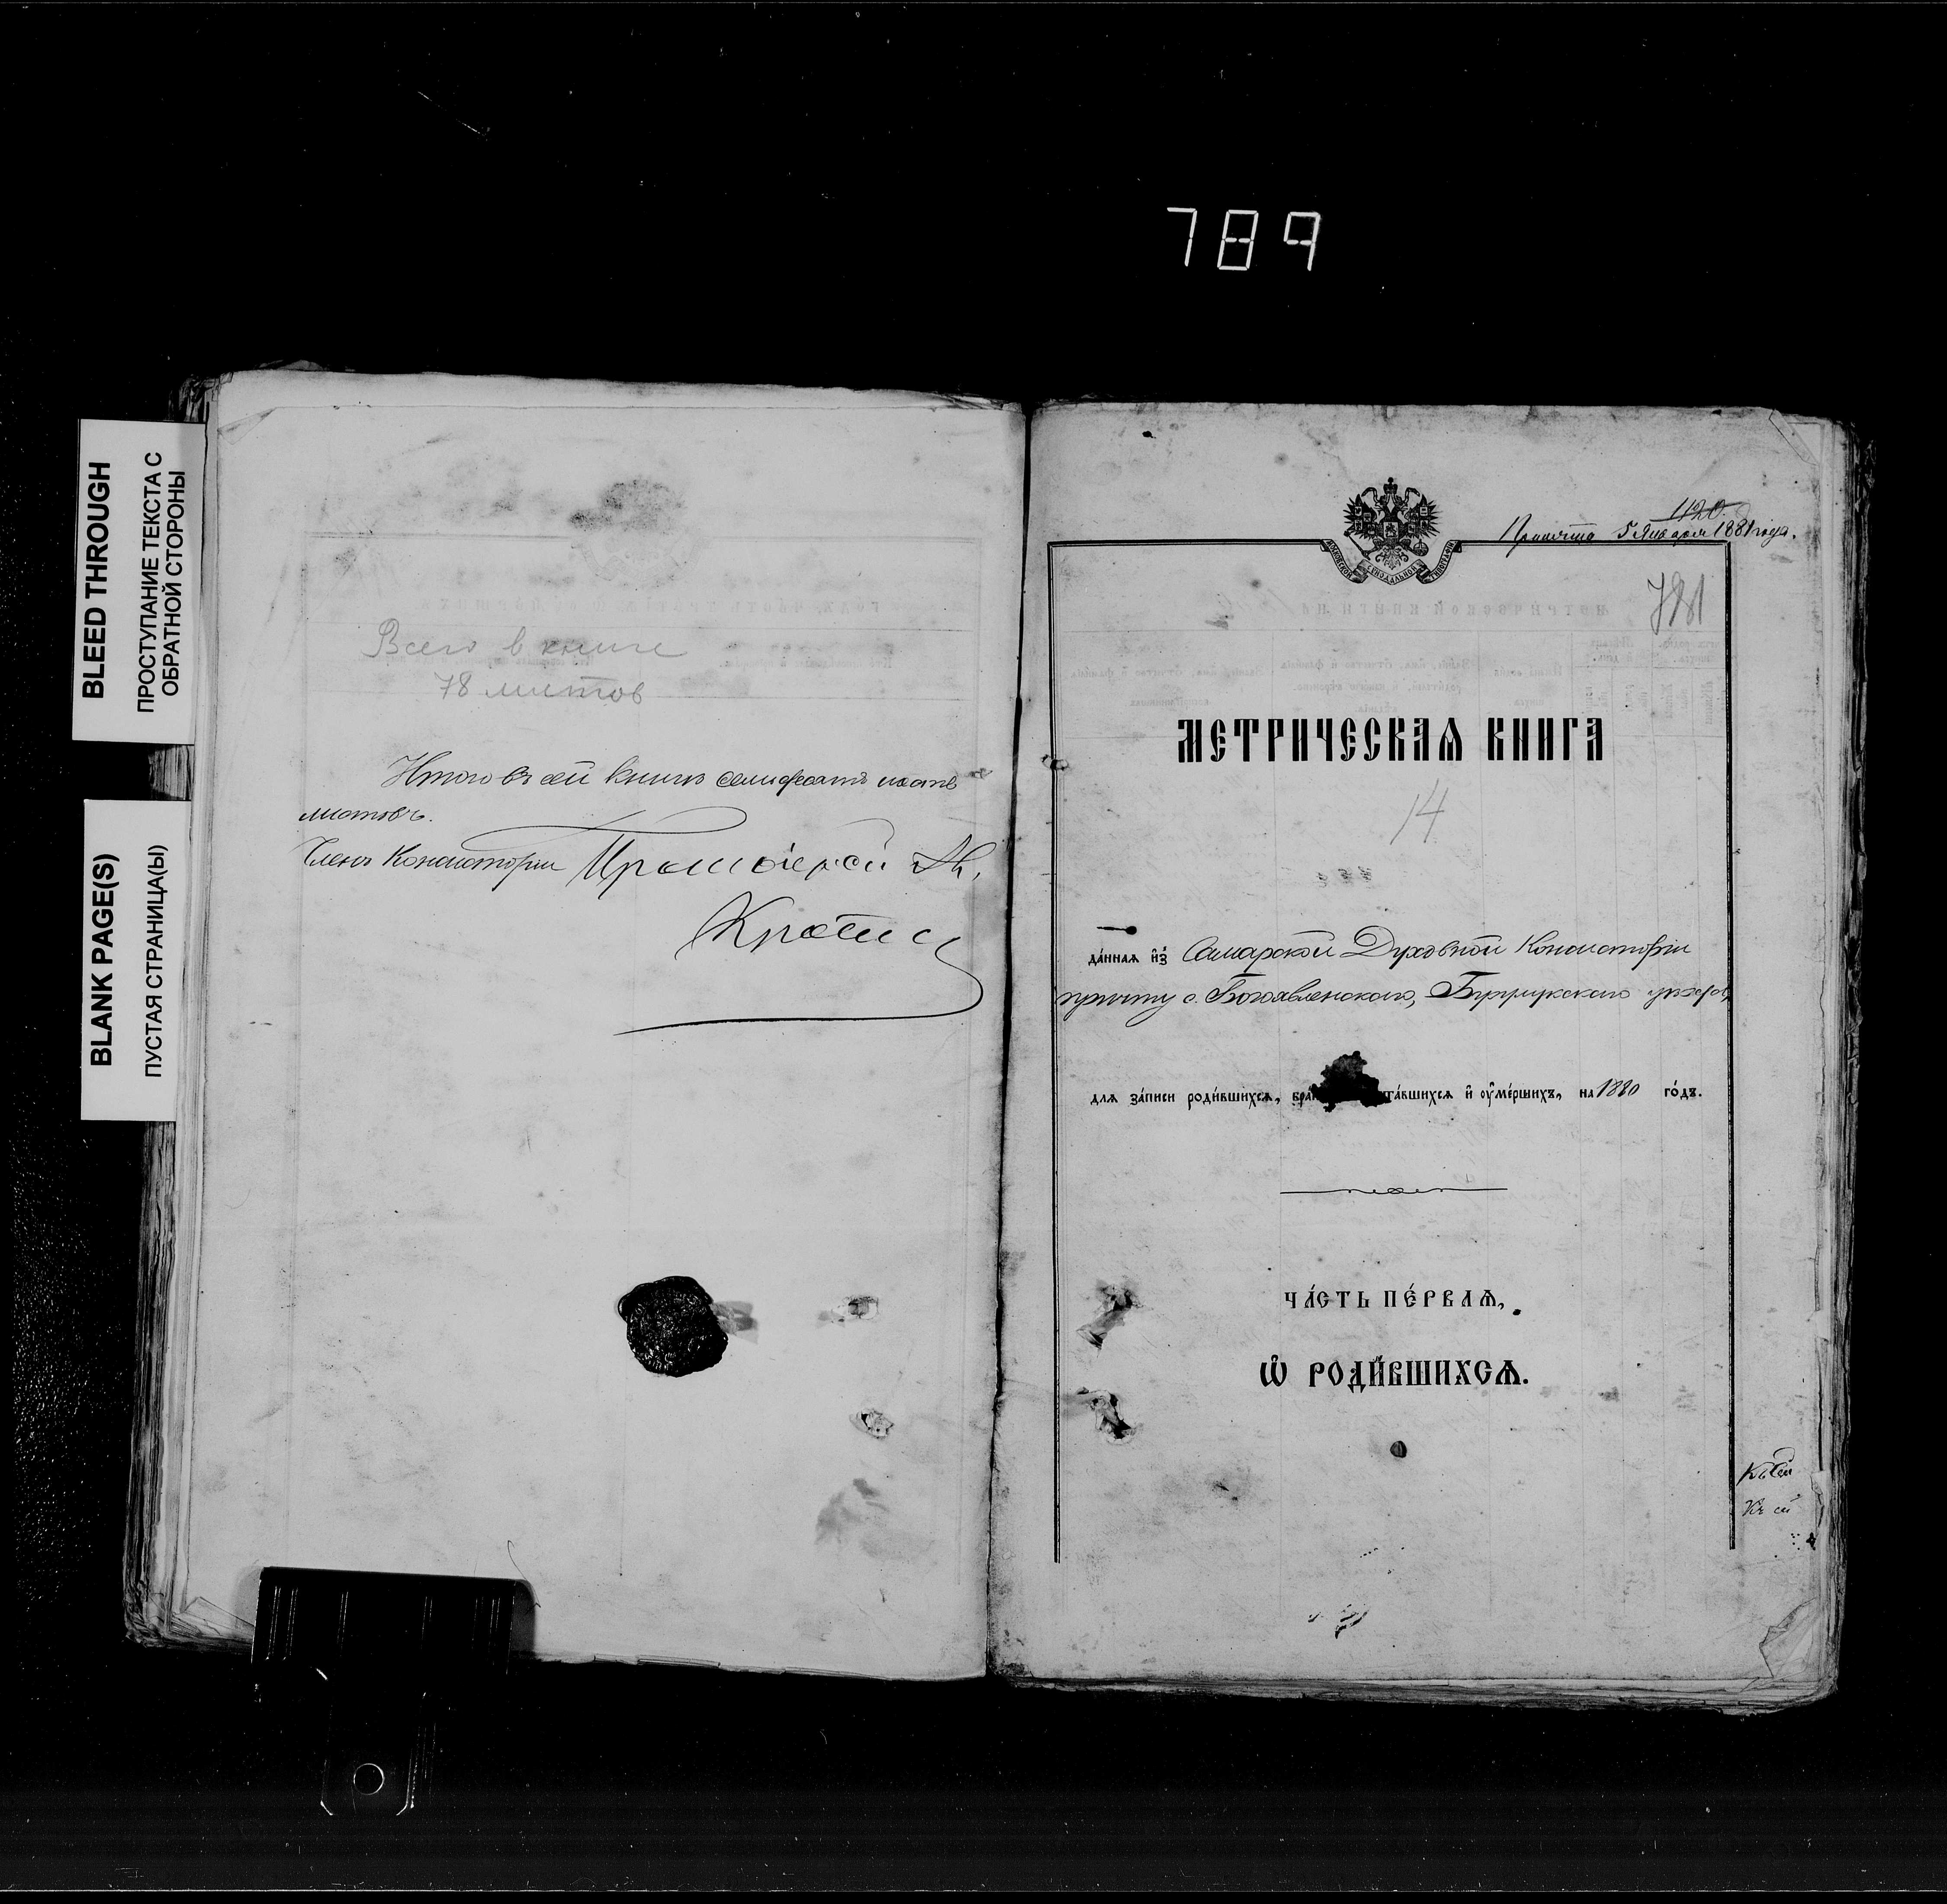 789
BLEED THROUGH
ПРОСТУПАНИЕ ТЕКСТА С
ОБРАТНОЙ СТОРОНЫ
BLANK PAGE(S)
ПУСТАЯ СТРАНИЦА(Ы)
Всего в книге
78 листов
Итого въ сей книгѣ семьдесятъ шесть
листовъ.
Членъ Консисторіи Протоіерей
1120.
Принята 5 Января 1881 года.
781
МЕТРИЧЕСКАѦ КНИГА
14
да́ннаѧ и҆з̾ Самарской Духовной Консисторіи
причту с. Богоявленскаго, Бузулукскаго уѣзда,
для за́писи роди́вшихсѧ, бра та́вшихсѧ и҆ ᲂу҆ме́ршихъ, на 1880 го́дъ.
ЧА́СТЬ ПЕ́РВАѦ,
Ѡ҆ РОДИ́ВШИХСѦ.
Къ сей
Къ сей